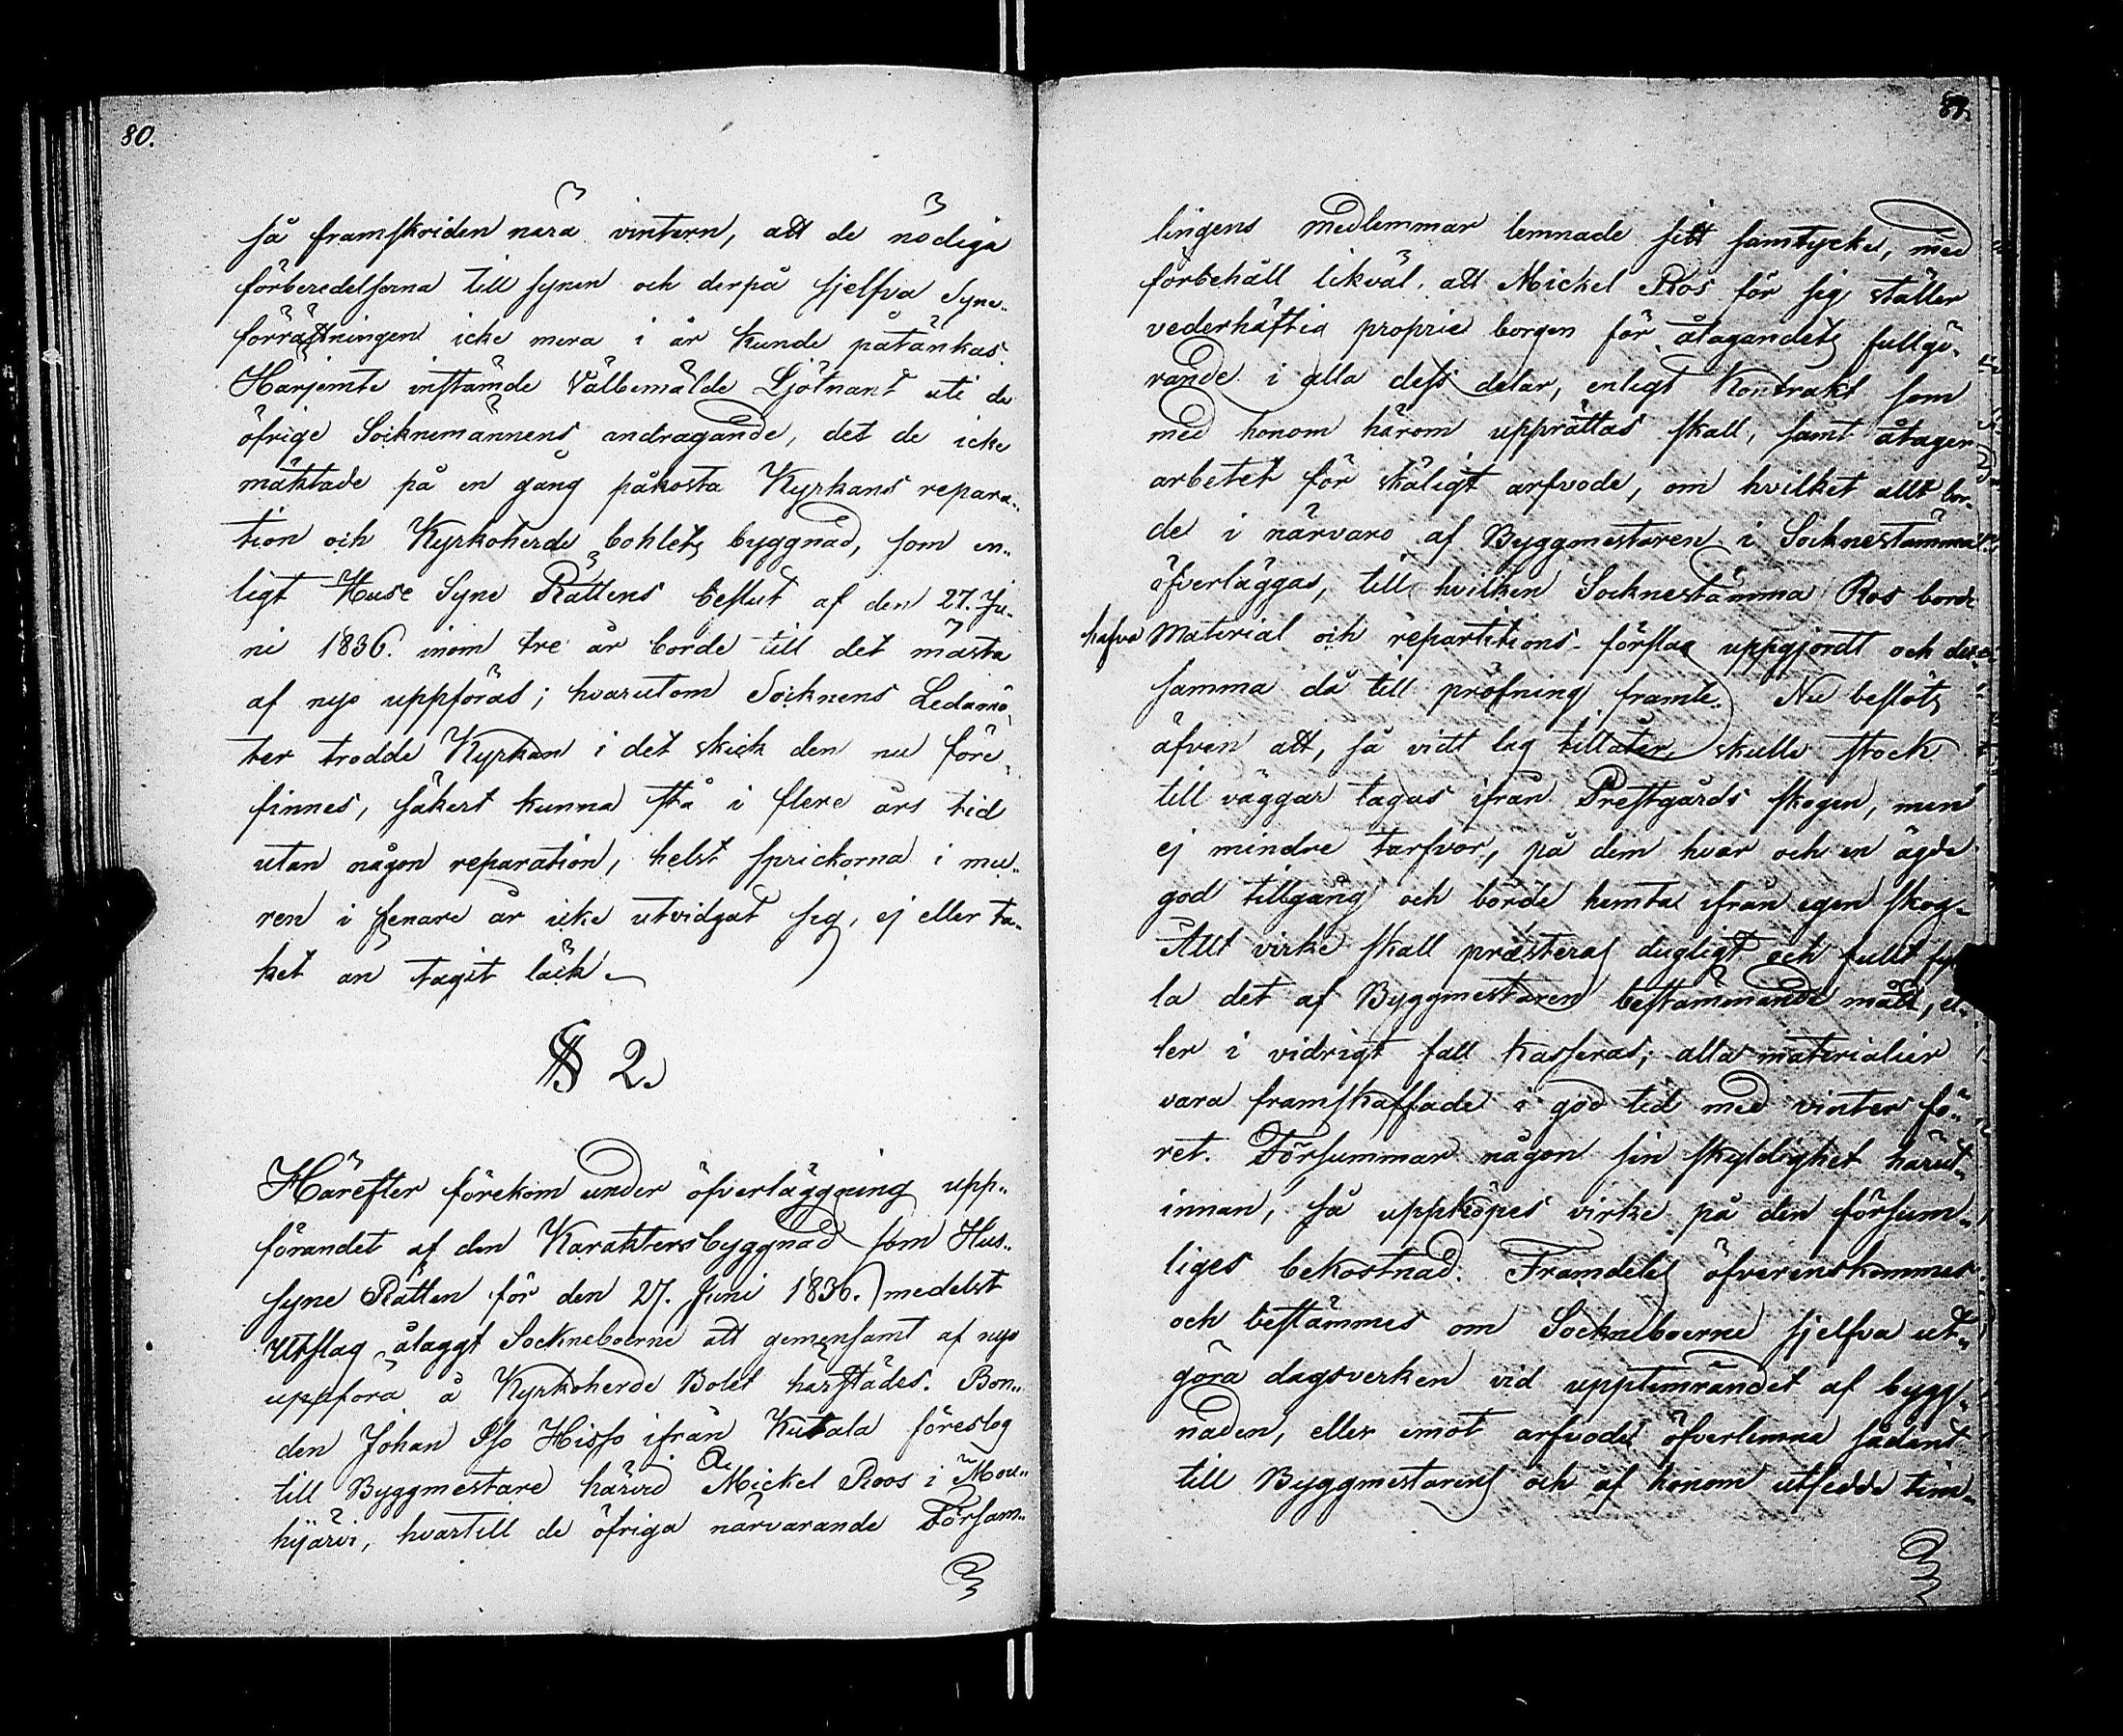 80.
så framskriden nära vintern, att de nödiga
förberedelserna till synen och derpå sjelfva Syne-
förrättningen icke mera i år kunde påtänkas
Härjemte instämde Välbemälde Ljötnant uti de
öfrige Socknemännens andragande, det de icke
mäktade på en gång påkosta Kyrkans repara-
tion och Kyrkoherde bohlets byggnad, som en-
ligt Huse Syne Rättens beslut af den 27. Ju-
ni 1836. inom tre år borde till det mästa
af nyo uppföras; hvarutom Socknens Ledamö-
ter trodde Kyrkan i det skick den nu före-
finnes, säkert kunna stå i flere års tid
utan någon reparation, helst sprickorna i mu-
ren i senare år icke utvidgat sig, ej eller ta-
ket än tagit läck.
§ 2.
Härefter förekom under öfverläggning upp-
förandet af den Karaktersbyggnad som Hus-
syne Rätten för den 27. Juni 1836. medelst
Utslag ålaggt Sockneboerne att gemensamt af nyo
uppföra å Kyrkoherde Bolet härstädes. Bon-
den Johan Hisso ifrån Kutala föreslog
till Byggmestare härvid Mickel Roos i Mou-
hijärvi, hvartill de öfriga närvarande Försam-
81.
lingens medlemmar lemnade sitt samtycke, med
förbehåll likväl, att Mickel Ros för sig ställer
vederhäftig proprie borgen för åtagandets fullgö-
rande i alla dess delar, enligt Kontrakt som
med honom härom upprättas skall, samt åtager
arbetet för skäligt arfvode, om hvilket allt bor-
de i närvaro af Byggmestaren i Socknestämma
öfverläggas, till hvilken Socknestämma Ros borde
hafva Material och repartitions-förslag uppgjordt och det-
samma då till pröfning framte. Nu beslöts
äfven att, så vidt lag tillåter, skulle stock
till väggar tagas ifrån Prestgårds skogen, men
ej mindre tarfvor, på dem hvar och en ägde
god tillgång och borde hemta ifrån egen skog.
Allt virke skall præsteras dugligt och fullt fyl
la det af Byggmestaren bestämmande mått, el-
ler i vidrigt fall kasseras; alla materialier
vara framskaffade i god tid med vinter fö-
ret. Försummar någon sin skyldighet härut-
innan, så uppköpes virke på den försum-
liges bekostnad. Framdeles öfverenskommes
och bestämmes om Sockneboerne sjelfva ut-
göra dagsverken vid upptimrandet af bygg-
naden, eller emot arfvode öfverlemna sådant
till Byggmestaren och af honom utsedde tim-